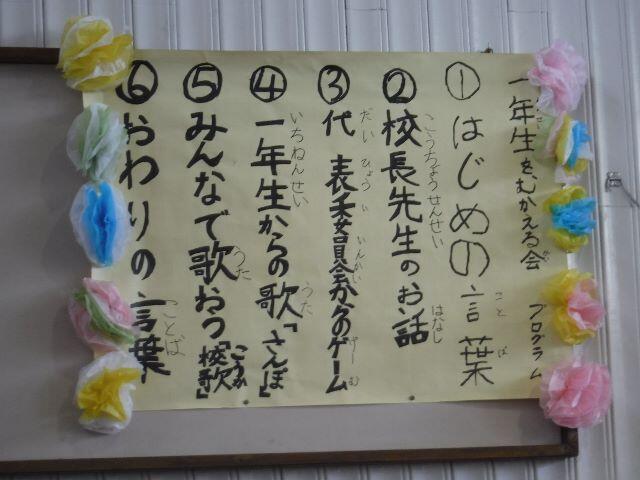 一年生を、むかえる会 プログラム
①はじめの言葉
ことば
②校長先生のお話
こうちょうせんせい はなし
③代表委員会からのゲーム
だいひょういいんかい
④一年生からの歌「さんぽ」
いちねんせい うた
⑤みんなで歌おう「校歌」
うた こうか
⑥おわりの言葉
ことば